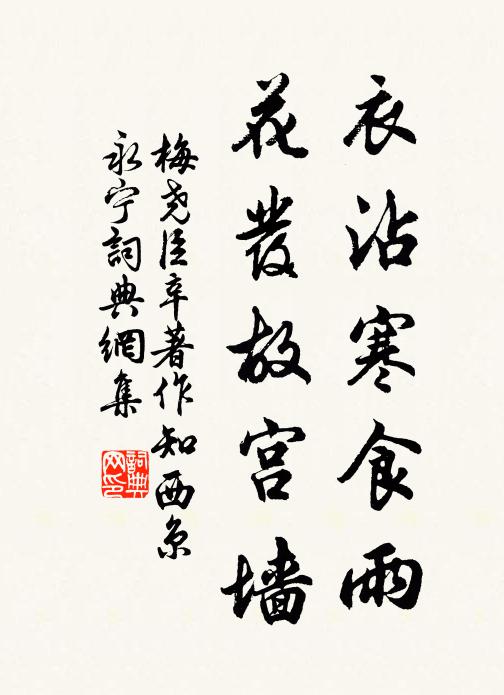 衣沾寒食雨
花發故宫墙
梅尧臣辛著作知西京
永宁詞典網集
詞典网印